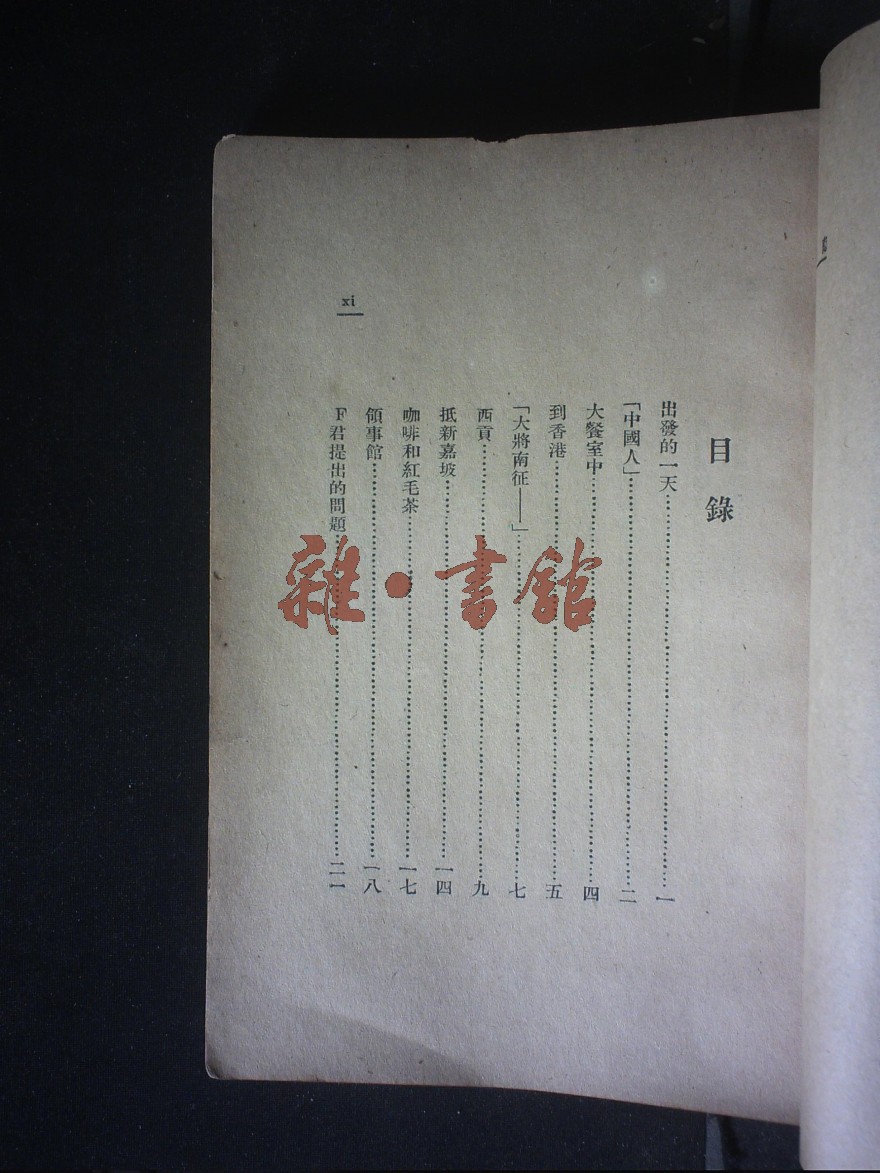 目錄
出發的一天……一
「中國人」……二
大餐室中……四
到香港……五
「大將南征——」……七
西貢……九
抵新嘉坡……一四
咖啡和紅毛茶……一七
領事館……一八
F君提出的問題……二一
xi
雜·書館